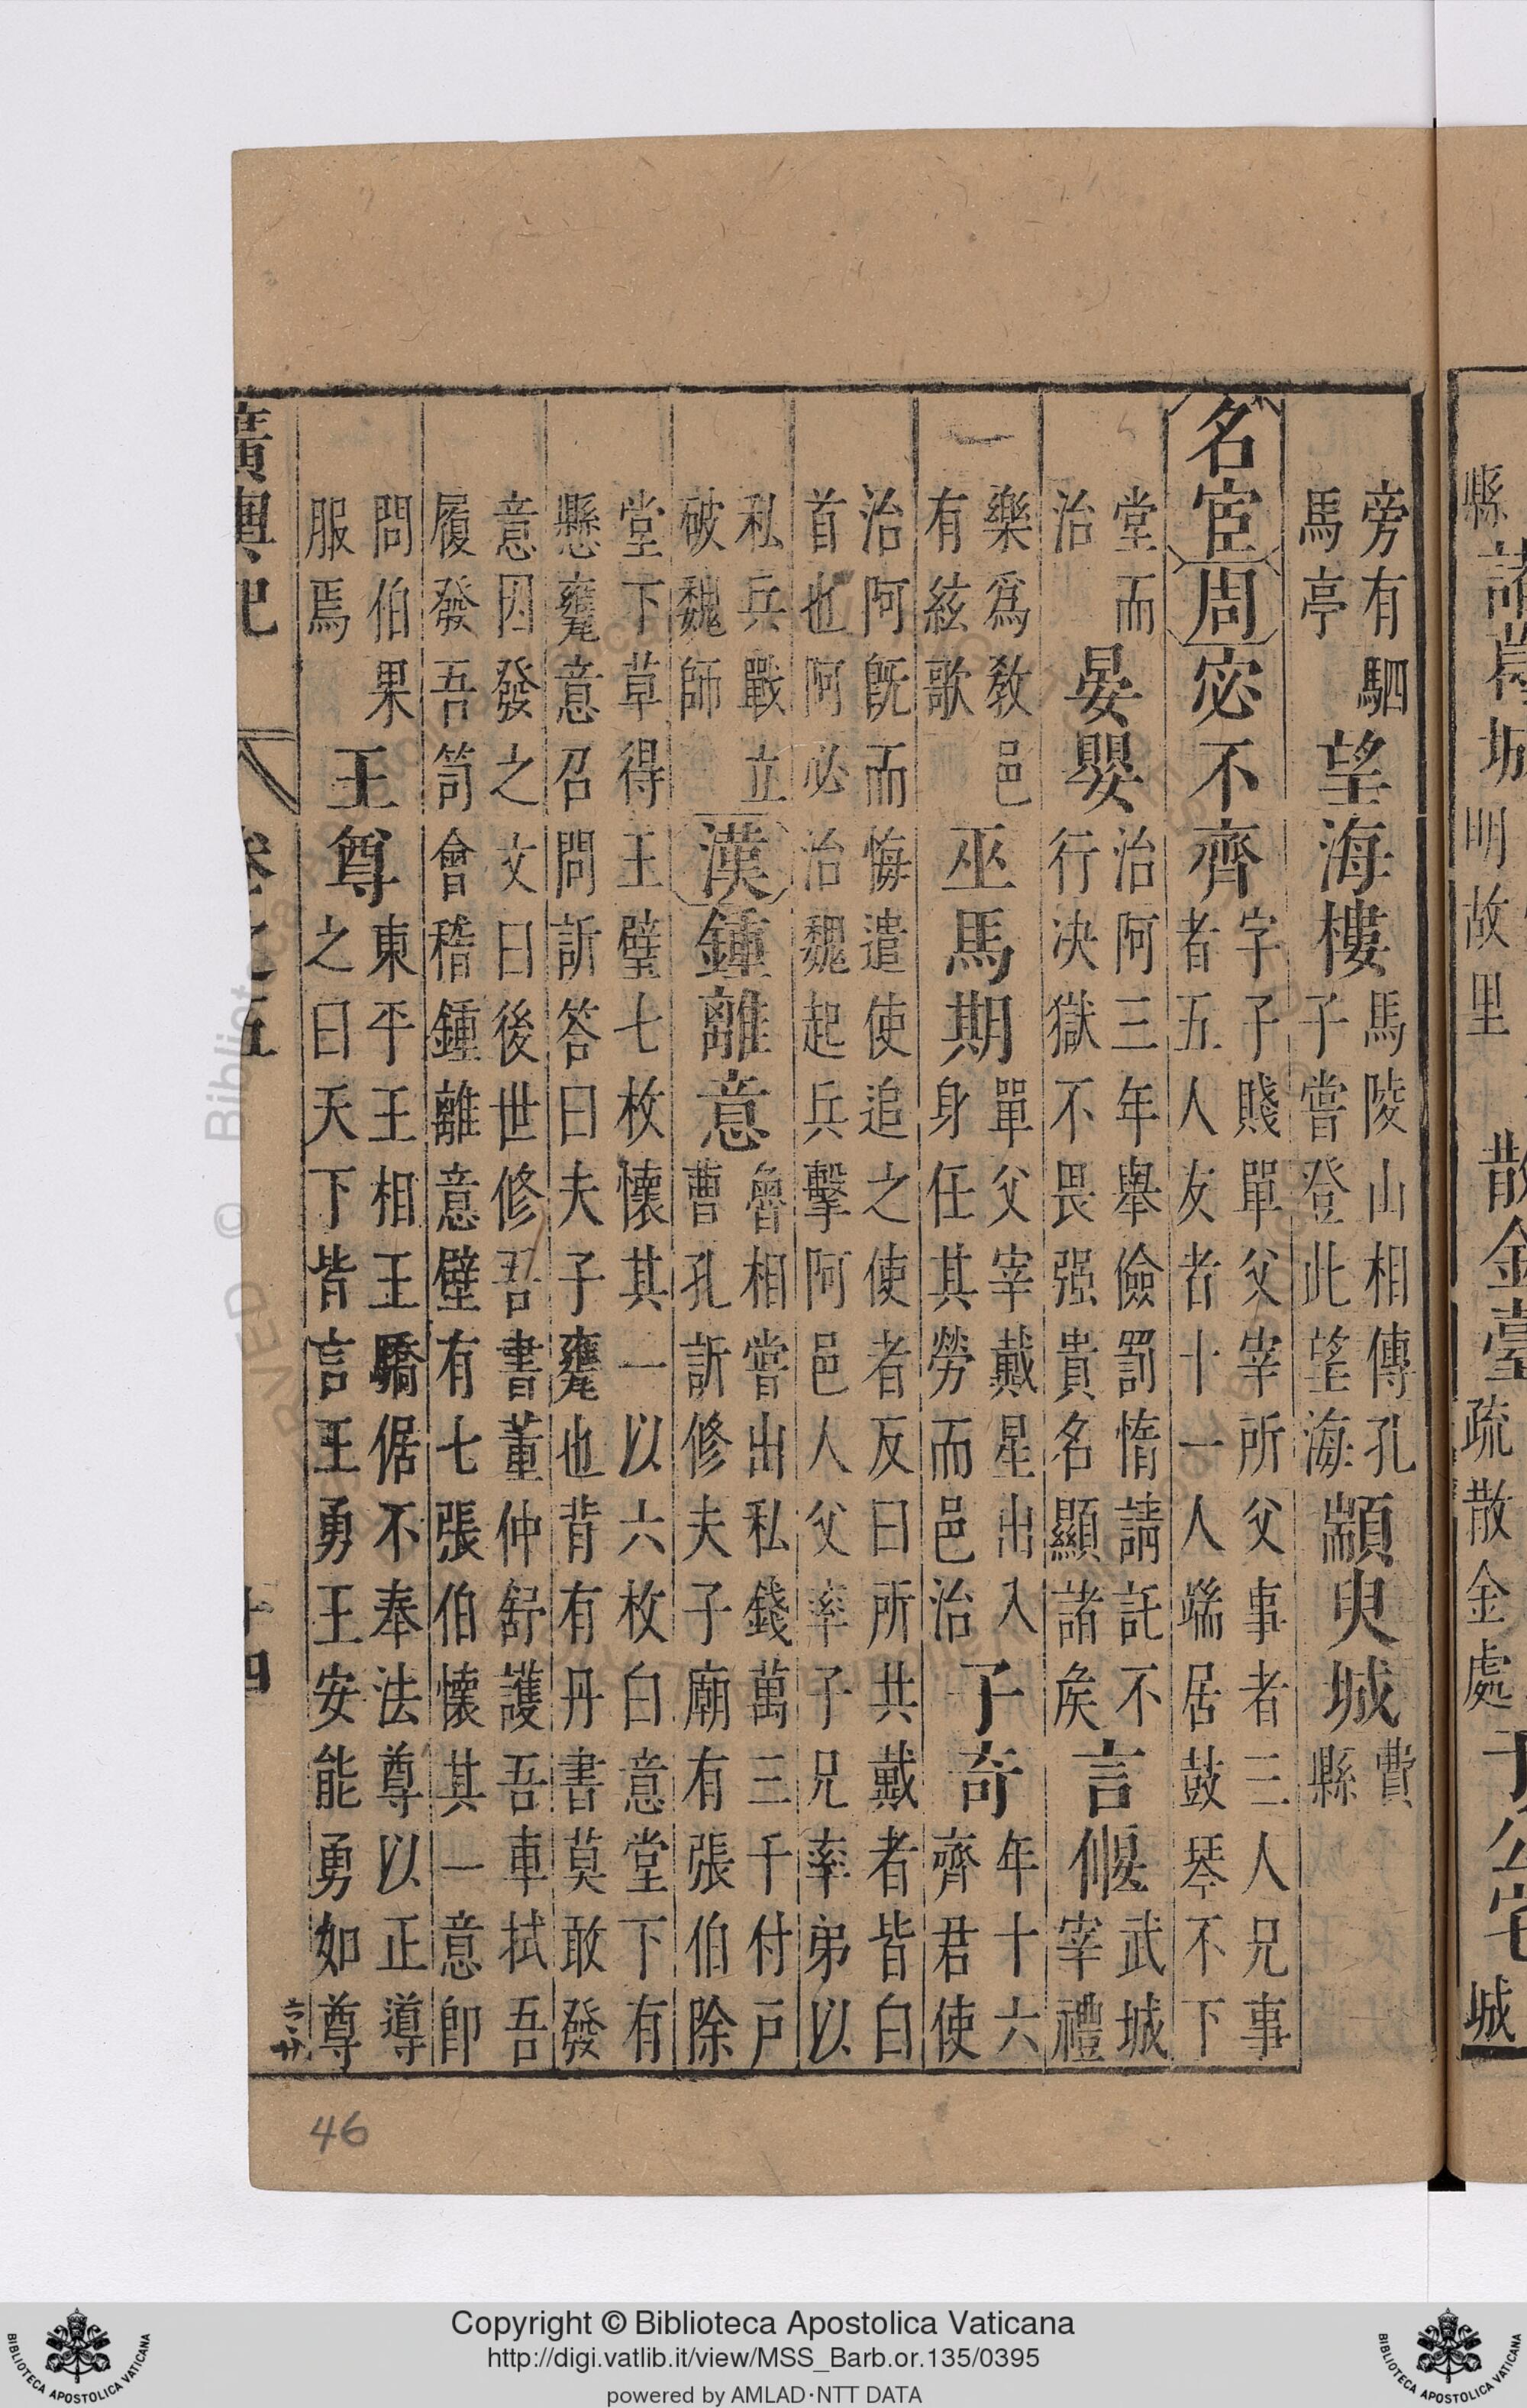 縣 諸葛城 明故里 散金臺 疏散金處 于公宅 城
旁有駟馬亭 望海樓 馬陵山相傳孔子嘗登此望海 顓臾城 費縣
名宦 周 宓不齊 字子賤單父宰所父事者三人兄事者五人友者十一人端居鼓琴不下
堂而治 晏嬰 治阿三年舉儉罰惰請託不行决獄不畏强貴名顯諸矦 言偃 武城宰禮
樂爲教邑有絃歌 巫馬期 單父宰戴星出入身任其勞而邑治 子奇 年十六齊君使
治阿旣而悔遣使追之使者反曰所共戴者皆白首也阿必治魏起兵擊阿邑人父率子兄率弟以
私兵戰立破魏師 漢 鍾離意 魯相嘗出私錢萬三千付戸曹孔訢修夫子廟有張伯除
堂下草得玉璧七枚懷其一以六枚白意堂下有懸甕意召問訢答曰夫子甕也背有丹書莫敢發
意因發之文曰後世修吾書董仲舒護吾車拭吾履發吾笥會稽鍾離意璧有七張伯懷其一意卽
問伯果服焉 王尊 東平王相王驕倨不奉法尊以正導之曰天下皆言王勇王安能勇如尊
廣輿記 卷之五 十四
46
Copyright © Biblioteca Apostolica Vaticana
http://digi.vatlib.it/view/MSS_Barb.or.135/0395
powered by AMLAD·NTT DATA
BIBLIOTECA APOSTOLICA VATICANA
BIBLIOTECA APOSTOLICA VATICANA